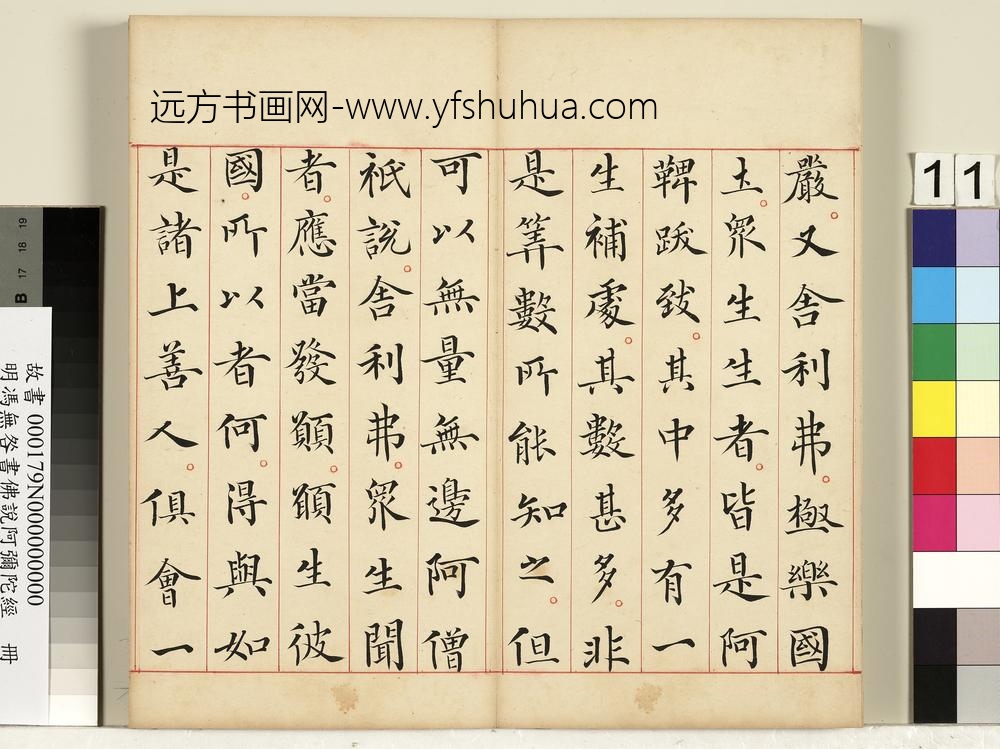 远方书画网-www.yfshuhua.com
嚴。又舍利弗。極樂國
土。眾生生者。皆是阿
鞞跋致。其中多有一
生補處。其數甚多。非
是筭數所能知之。但
可以無量無邊阿僧
祇說。舍利弗。眾生聞
者。應當發願。願生彼
國。所以者何。得與如
是諸上善人。俱會一
11
19
18
17
B
故書 000179N000000000
明馮無咎書佛說阿彌陀經 冊